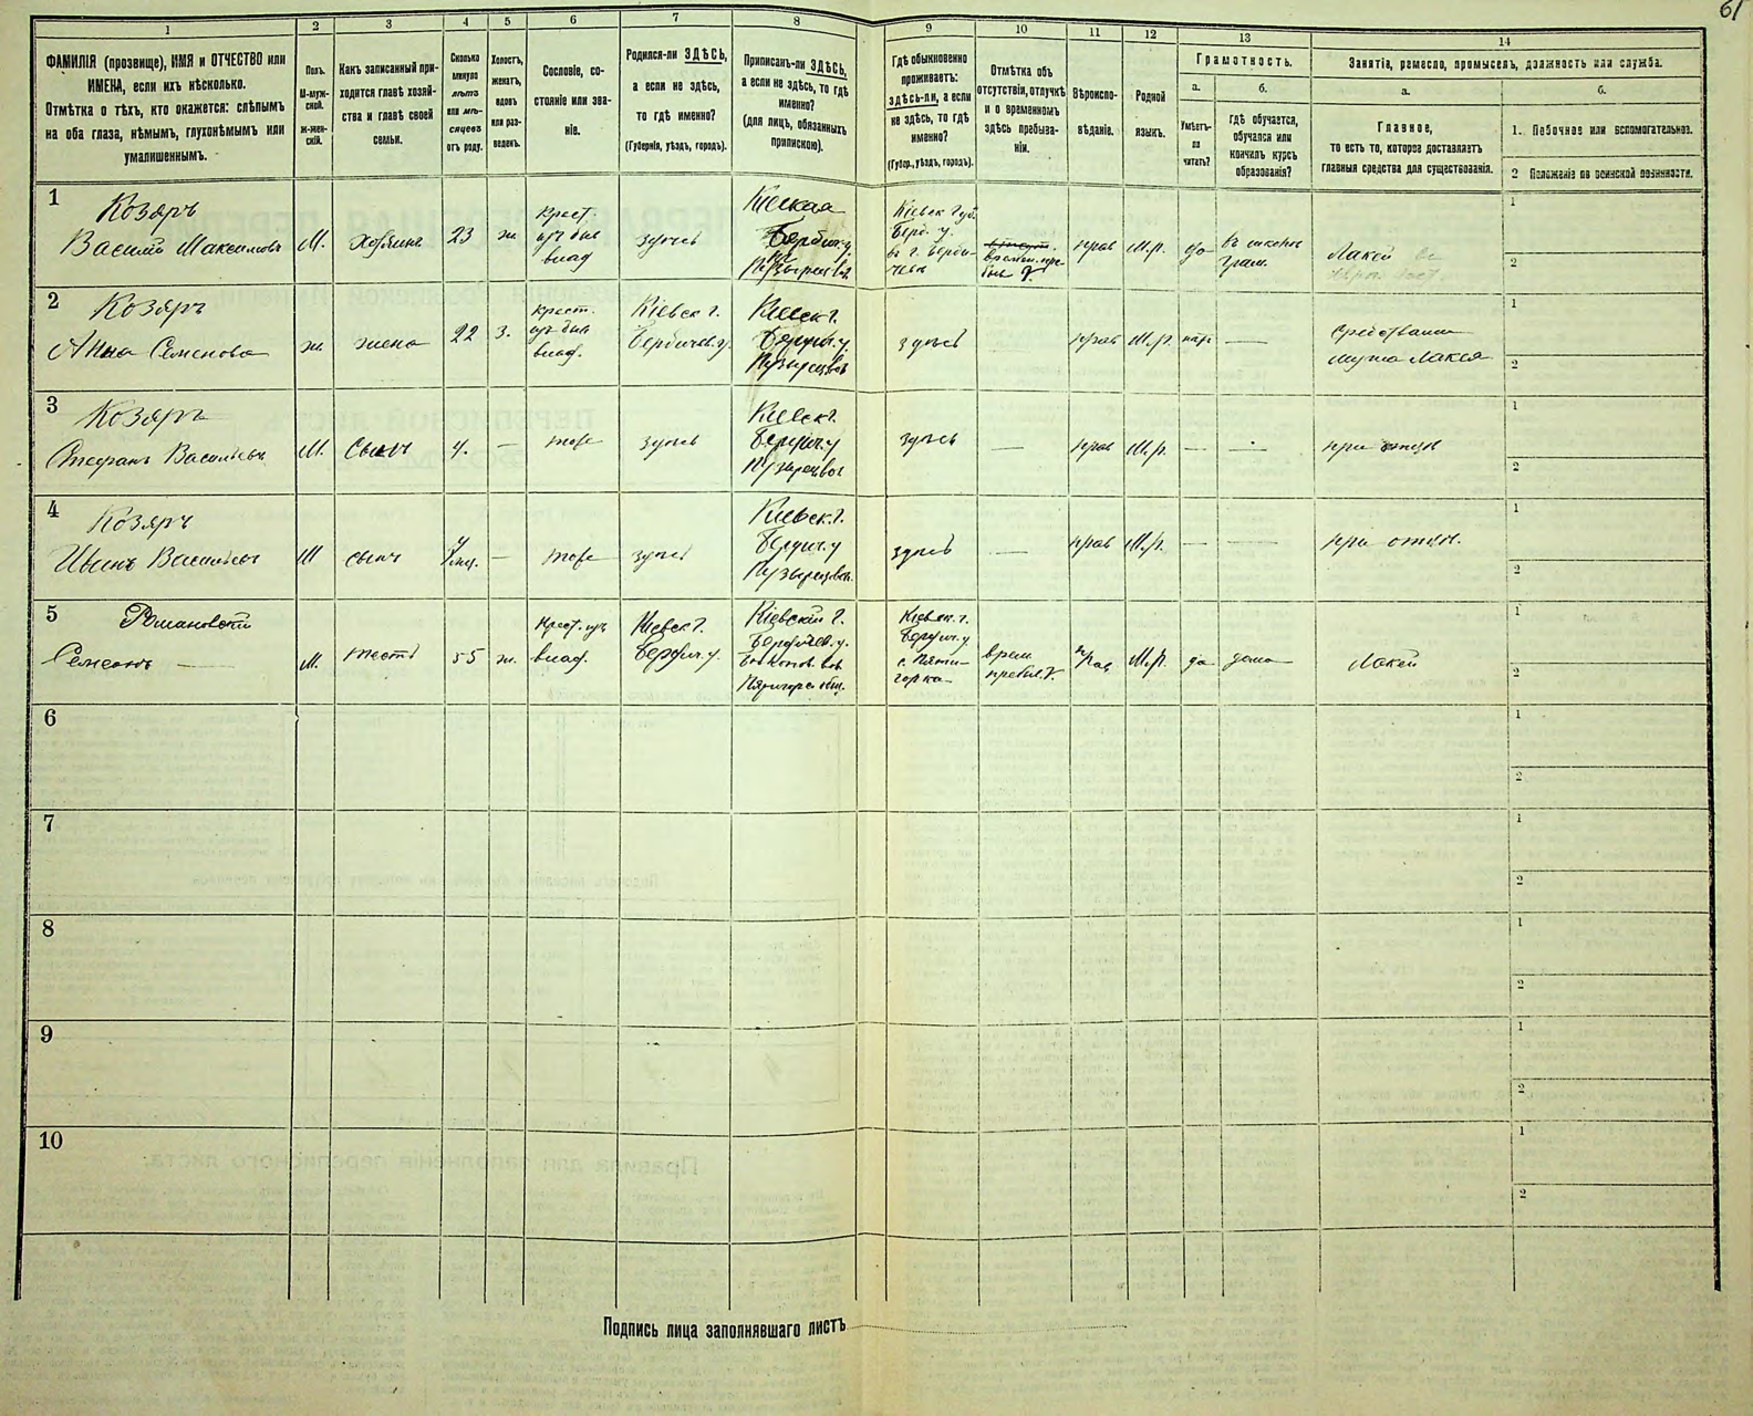 61
1
2
3
4
5
6
7
8
9
10
11
12
13
14
ФАМИЛІЯ (прозвище), ИМЯ и ОТЧЕСТВО или
ИМЕНА, если ихъ нѣсколько.
Отмѣтка о тѣхъ, кто окажется: слѣпымъ
на оба глаза, нѣмымъ, глухонѣмымъ или
умалишеннымъ.
Полъ.
М-муж-
ской.
Ж-жен-
скій.
Какъ записанный при-
ходится главѣ хозяй-
ства и главѣ своей
семьи.
Сколько
минуло
лѣтъ
или мѣ-
сяцевъ
отъ роду.
Холостъ,
женатъ,
вдовъ
или раз-
веденъ.
Сословіе, со-
стояніе или зва-
ніе.
Родился-ли ЗДѢСЬ,
а если не здѣсь,
то гдѣ именно?
(Губернія, уѣздъ, городъ).
Приписанъ-ли ЗДѢСЬ,
а если не здѣсь, то гдѣ
именно?
(для лицъ, обязанныхъ
припискою).
Гдѣ обыкновенно
проживаетъ:
здѣсь-ли, а если
не здѣсь, то гдѣ
именно?
(Губер., уѣздъ, городъ).
Отмѣтка объ
отсутствіи, отлучкѣ
и о временномъ
здѣсь пребыва-
ніи.
Вѣроиспо-
вѣданіе.
Родной
языкъ.
Грамотность.
а.
Умѣетъ-
ли
читать?
б.
Гдѣ обучается,
обучался или
кончилъ курсъ
образованія?
Занятіе, ремесло, промыселъ, должность или служба.
а.
Главное,
то есть то, которое доставляетъ
главныя средства для существованія.
б.
1. Побочное или вспомогательное.
2 Положеніе по воинской повинности.
1
Козяръ
Василій Максимовъ
М.
хозяинъ
23
ж
крест.
изъ быв
влад
здѣсь
Кіевская
Бердич. у.
Кіевск губ.
Берд. у.
въ г. Берди-
чевѣ
прав
М.р.
да
Лакей
1
2
2
Козяръ
Анна Семенова
ж.
жена
22
з.
крест.
изъ быв
влад.
Кіевск г.
Бердичев. у.
Кіевск г.
Бердич. у.
здѣсь
прав
М.р.
нѣт
—
средствами
мужа Лакея
1
2
3
Козяръ
Стефанъ Васильевъ
М.
сынъ
4.
—
тоже
здѣсь
Кіевск г.
Бердич. у
здѣсь
—
прав
М.р.
—
при отцѣ
1
2
4
Козяръ
Иванъ Васильевъ
М
сынъ
—
тоже
здѣсь
Кіевск. г.
Бердич. у
здѣсь
—
прав
М.р.
—
—
при отцѣ.
1
2
5
Романовскій
Семенъ —
М.
тесть
55
ж.
Крест. изъ
влад.
Кіевск г.
Бердич. у.
Кіевской г.
Бердичев. у.
Кіевск. г.
Бердич. у
с. Пяти-
горка
врем.
пребыв.
прав
М.р.
да
дома
Лакей
1
2
6
1
2
7
1
2
8
1
2
9
1
2
10
1
2
Подпись лица заполнявшаго листъ